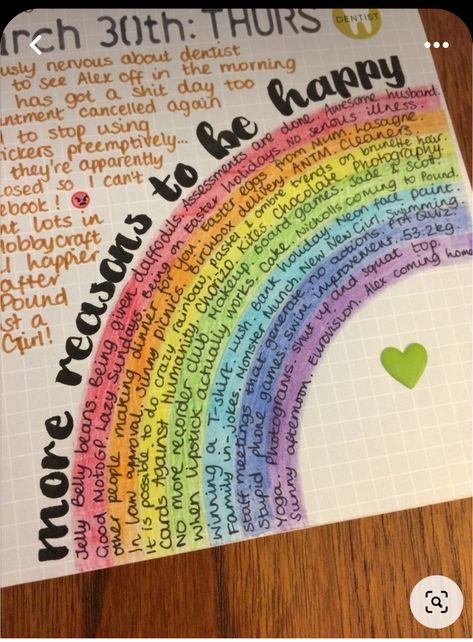 arch 30th: THURS
DENTIST
usly nervous about dentist
to see Alex off in the morning
has got a shit day too
intment cancelled again
to stop using
ickers preemptively...
they're apparently
osed so I can't
ebook!
nt lots in
Hobbycraft
happier
after
Pound
st a
Girl!
more reasons to be happy
Jelly Belly beans. Being given daffodils. Assessments are done. Awesome husband.
Good MotoGP. Lazy Sundays. Being on Easter holidays. No serious illness.
other people making dinner for you. Easter eggs from Mum. Lasagne.
In law approval. Sunny picnics. Birchbox delivery. ANTM. Cleaners.
It is possible to do crazy rainbow pastel ombre trend on brunette hair.
Cards Against Humanity. Chorizo. Kites. Chocolate photography.
No more recade club. Makeup. social games. Jade & Scott
when lipstick actually works. Cake. Nicholls coming to Pound.
winning a T-shirt. Lush. Bank holiday. Neon face paint
Family in-jokes. Monster Munch. New New Girl. Swimming
staff meetings that generate no actions. PTA quiz
stupid phone games. Swim improvement. 53.2kg.
Yoga Photograms. Shut up and squat top
Sunny afternoon. Eurovision. Alex coming home